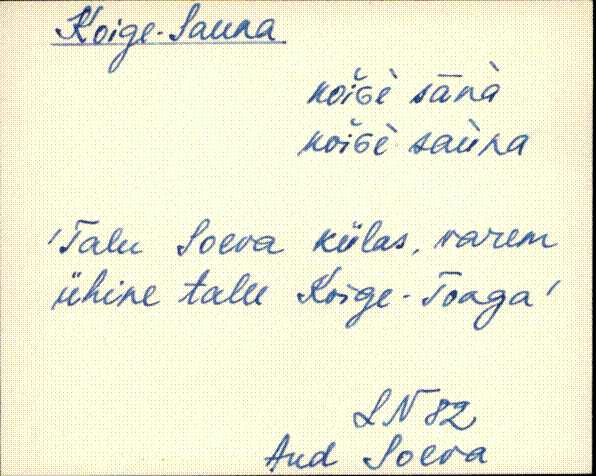 Koige-Sauna
koiǯè sānà
koiǯè saùna
'Talu Soeva külas, varem
ühine talu Koige-Toaga'
LN 82
Aud Soeva